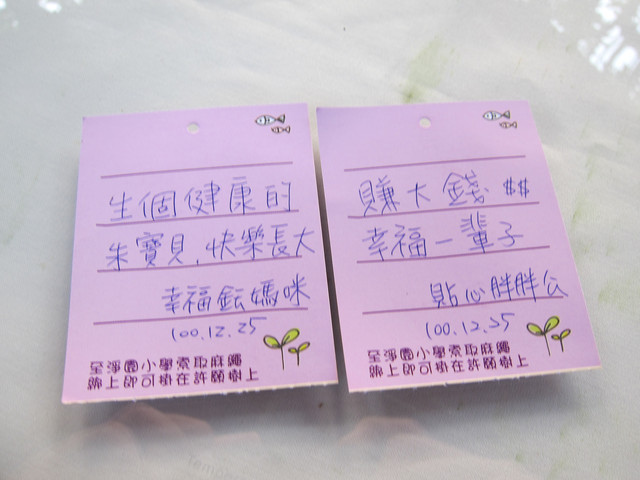 生個健康的
朱寶貝,快樂長大
幸福鈺媽咪
100.12.25
至淨園小學索取麻繩
綁上即可掛在許願樹上
賺大錢 $$
幸福一輩子
貼心胖胖公
100.12.25
至淨園小學索取麻繩
綁上即可掛在許願樹上